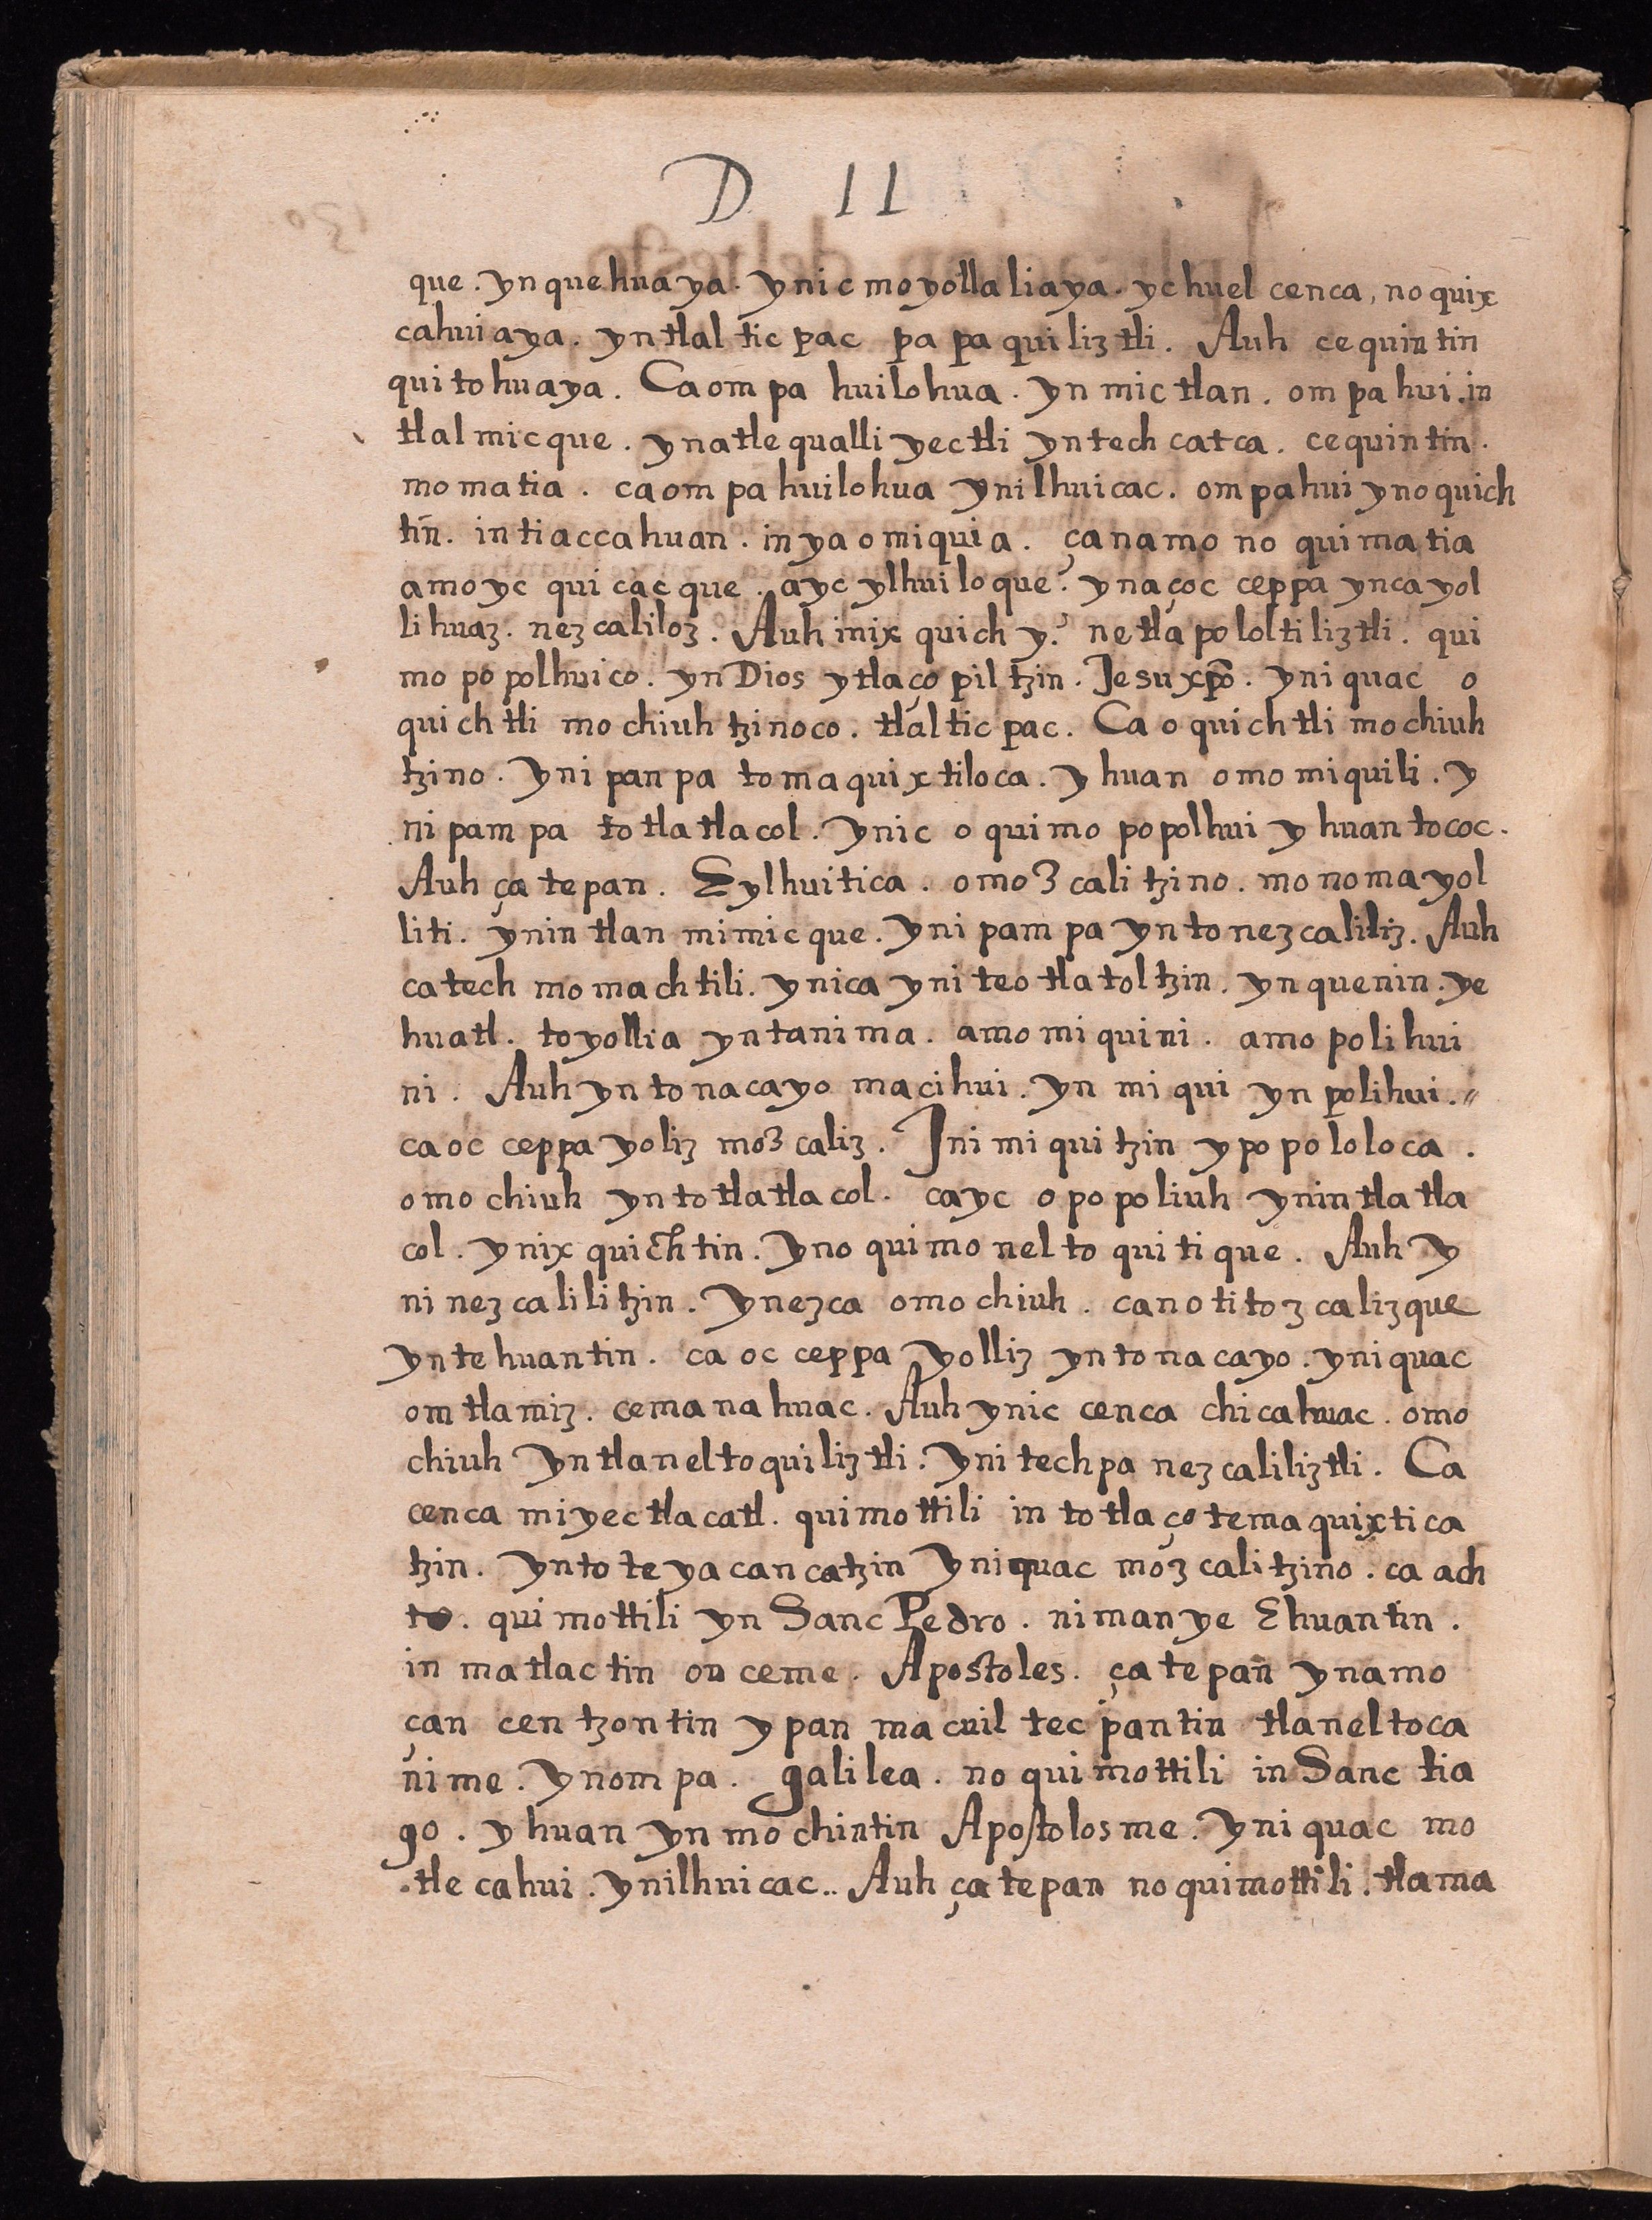 D 11
que. yn quehuaya. ynic moyollaliaya. yc huel cenca, no quix
cahuiaya. yn tlalticpac papaquiliztli. Auh cequintin
quitohuaya. Ca ompa huilohua. yn mictlan. ompa hui. in
tlalmicque. yn atle qualli yectli yntech catca. cequintin.
momatia. ca ompa huilohua yn ilhuicac. ompa hui yn oquich
tin. in tiaccahuan. in yaomiquia. çan amo no quimatia
amo yc quicacque. ayc ylhuiloque? yn aço oc ceppa ynca yol
lihuaz. nezcaliloz. Auh in ixquich y? netlapololtiliztli. qui
mopopolhuico. yn Dios ytlaçopiltzin. Jesu xp̃o. yn iquac o
quichtli mochiuhtzinoco. tlalticpac. Ca oquichtli mochiuh
tzino. yn ipanpa tomaquixtiloca. yhuan omomiquili. y
nipampa totlatlacol. ynic oquimopopolhui yhuan tococ.
Auh çatepan. Eylhuitica. omozcalitzino. monomayol
liti. ynintlan mimicque. yn ipampa yn tonezcaliliz. Auh
ca techmomachtili. ynica yn iteotlatoltzin. yn quenin. ye
huatl. toyollia yn tanima. amo miquini. amo polihui
ni. Auh yn tonacayo macihui. yn miqui yn polihui.
ca oc ceppa yoliz mozcaliz. Jn imiquitzin ypopololoca.
omochiuh yn totlatlacol. ca yc opopoliuh ynin tlatla
col. yn ixquichtin. yn oquimoneltoquitique. Auh y
ni nezcalilitzin. ynezca omochiuh. ca no titozcalizque
yn tehuantin. ca oc ceppa yolliz yn tonacayo. yn iquac
omtlamiz. cemanahuac. Auh ynic cenca chicahuac. omo
chiuh yn tlaneltoquiliztli. yn itechpa nezcaliliztli. Ca
cenca miyec tlacatl. quimottili in totlaçotemaquixtica
tzin. yn toteyacancatzin yn iquac mozcalitzino. ca ach
to. quimottili yn Sanc Pedro. niman yeehuantin.
in matlactin onceme. Apostoles. çatepan yn amo
çan centzontin ypan macuiltecpantin tlaneltoca
nime. yn ompa. galilea. no quimottili in Sanctia
go. yhuan yn mochintin Apostolosme. yn iquac mo
tlecahui. yn ilhuicac.. Auh çatepan no quimottili. tlama